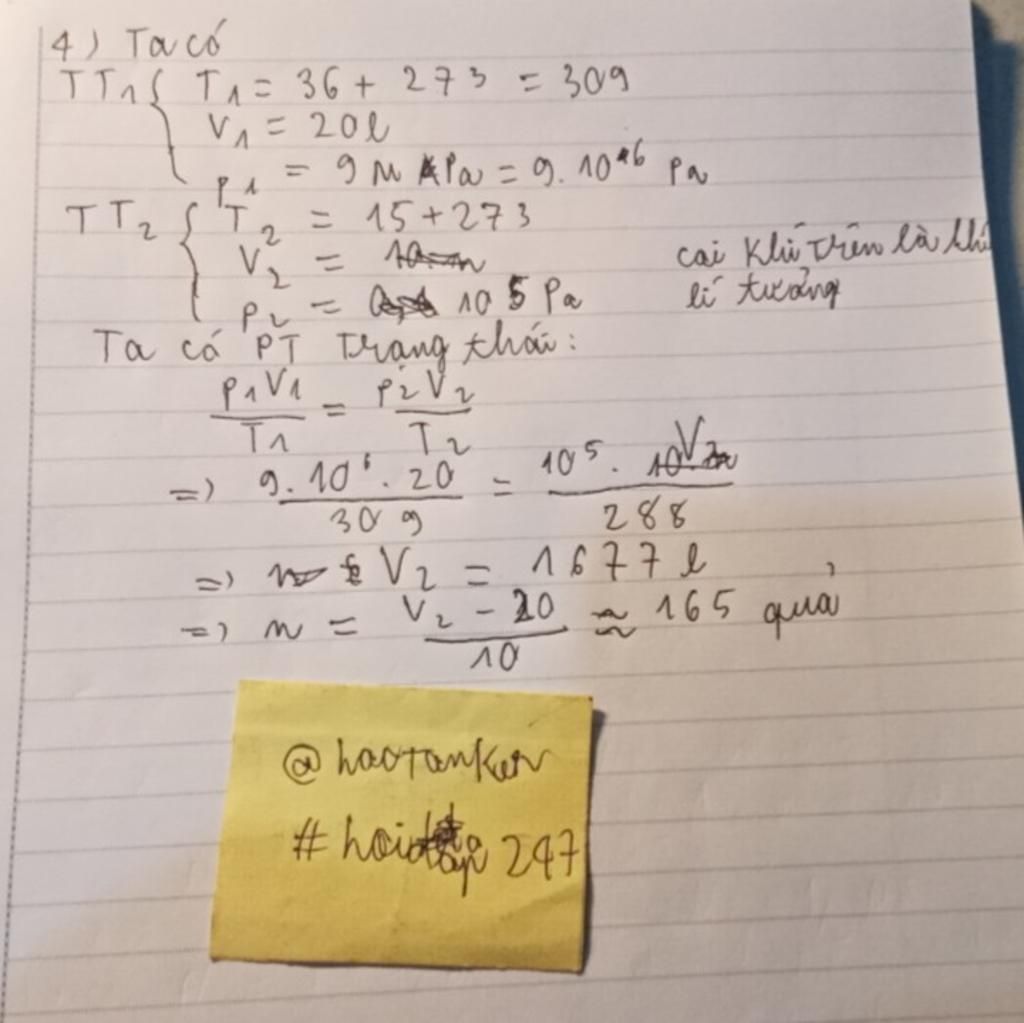 4) Ta có
TT1 { T1 = 36 + 273 = 309
V1 = 20l
p1 = 9 M Pa = 9. 10^6 Pa
TT2 { T2 = 15 + 273
V2 =
p2 = 10^5 Pa
coi khí trên là khí
lí tưởng
Ta có PT trạng thái:
p1V1/T1 = p2V2/T2
=> 9.10^6.20/309 = 10^5.V2/288
=> V2 = 1677 l
=> n = V2 - 20/10 ≈ 165 quả
@haotanken
#hoidap247